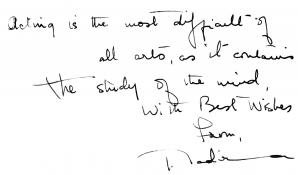 Acting is the most difficult of
all arts, as it contains
the study of the mind,
With Best Wishes
From,